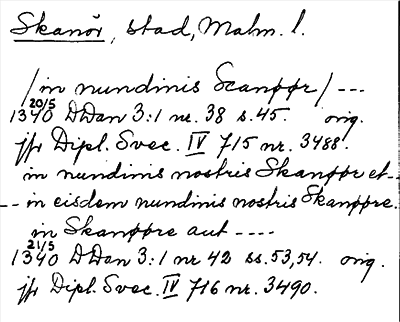 Skanör, stad, Malm. l.
/in nundinis Scanøør/ ---
20/5
1340 DDan 3:1 nr. 38 s. 45. orig.
jfr Dipl. Svec. IV 715 nr. 3488.
in nundinis nostris Skanøør et --
-- in eisdem nundinis nostris Skanøøre.
in Skanøøre aut ----
21/5
1340 DDan 3:1 nr 42 ss. 53, 54. orig.
jfr Dipl. Svec. IV 716 nr. 3490.